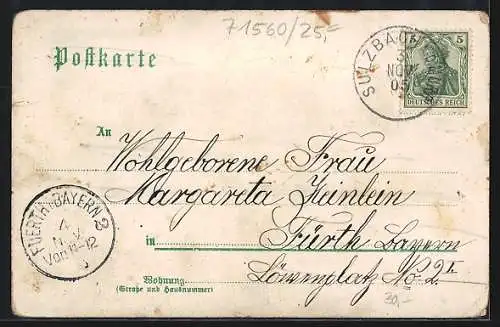 71560/25,-
Postkarte
SULZBACH
3
NOV
05
5
DEUTSCHES REICH
An
Wohlgeborene Frau
Margareta Heinlein
in Fürth Bayern
Löwenplatz No. 2
Wohnung
(Straße und Hausnummer)
FUERTH (BAYERN) 2
4
NOV
Vor 11-12
30,-